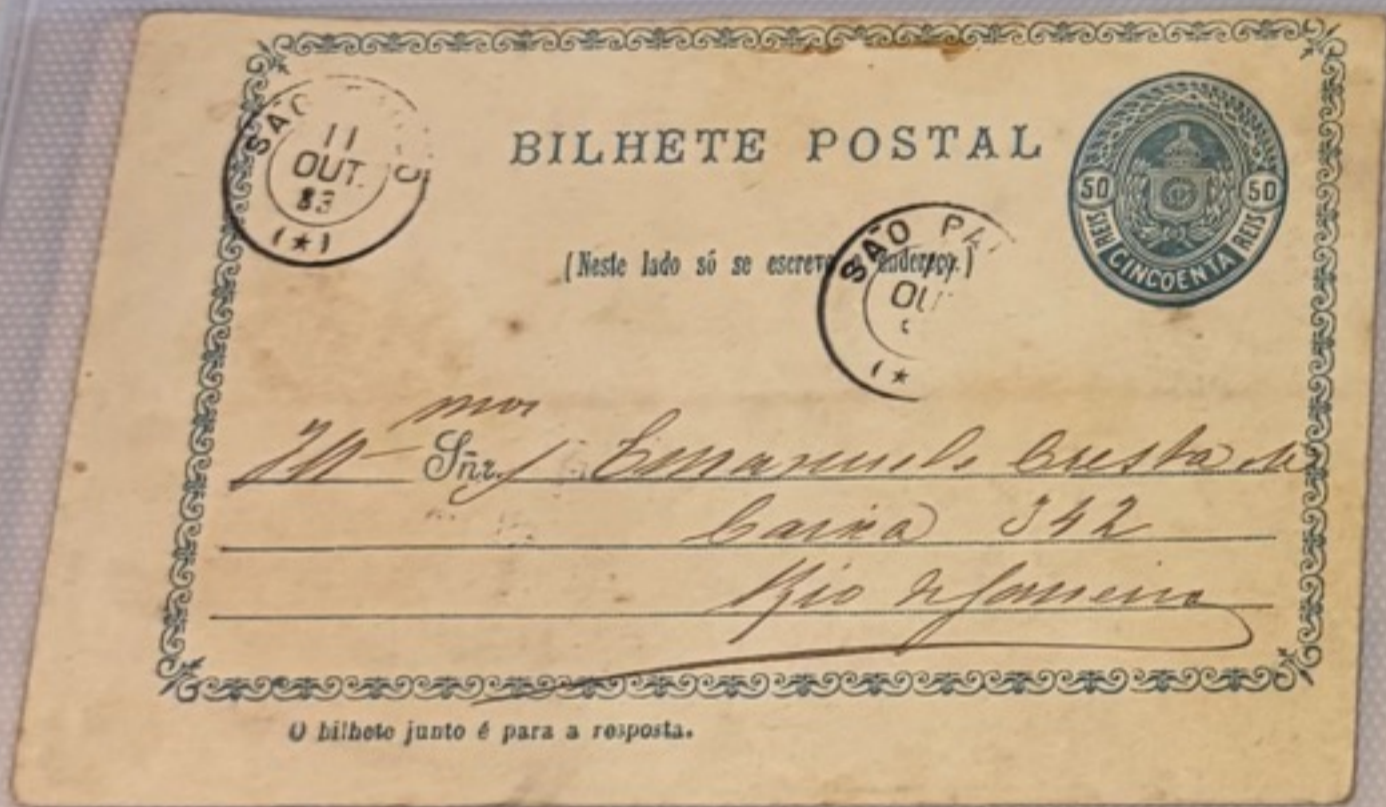 SÃO
11
OUT.
83
BILHETE POSTAL
50 50
REIS CINCOENTA REIS
(Neste lado só se escreve endereço.)
SÃO
Snr. Emanuele Cresta
Caixa 342
Rio de Janeiro
O bilhete junto é para a resposta.